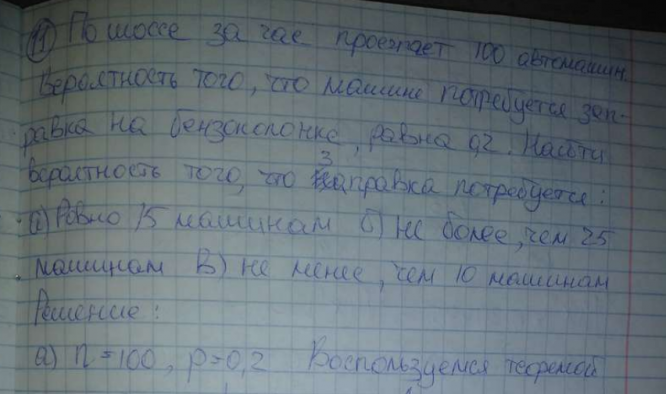 11) По шоссе за час проезжает 100 автомашин.
Вероятность того, что машине потребуется зап-
равка на бензоколонке, равна 0,2. Найти
вероятность того, что заправка потребуется:
а) Ровно 15 машинам б) не более, чем 25
машинам в) не менее, чем 10 машинам
Решение:
а) n = 100, p = 0,2 Воспользуемся теоремой